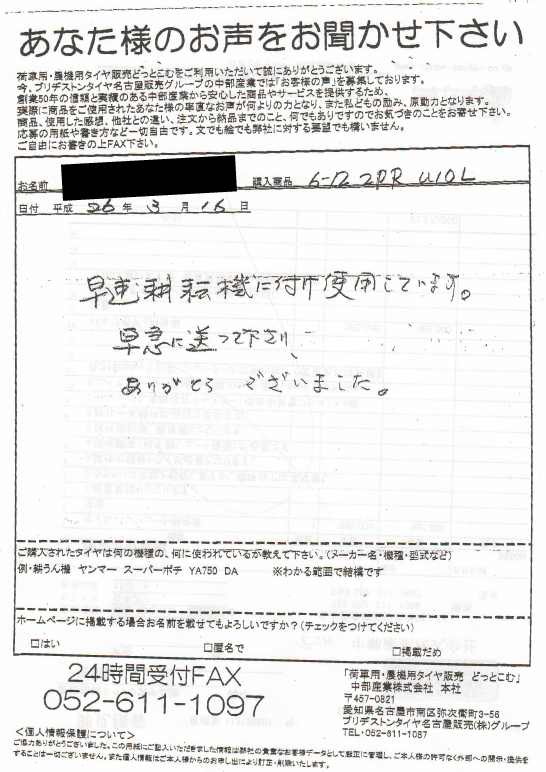 あなた様のお声をお聞かせ下さい
荷車用・農機用タイヤ販売どっとこむをご利用いただいて誠にありがとうございます。
今、ブリヂストンタイヤ名古屋販売グループの中部産業では「お客様の声」を募集しております。
創業50年の信頼と実績のある中部産業から安心した商品やサービスを提供するため、
実際に商品をご使用されたあなた様の率直なお声が何よりの力となり、また私どもの励み、原動力となります。
商品、使用した感想、他社との違い、注文から納品までのこと、何でもありですのでお気づきのことをお寄せ下さい。
応募の用紙や書き方など一切自由です。文でも絵でも弊社に対する要望でも構いません。
ご自由にお書きの上FAX下さい。
お名前 購入商品 6-12 2PR U10L
日付 平成 26 年 3 月 16 日
早速耕耘機に付け使用しています。
早急に送って下さり、
ありがとう ございました。
ご購入されたタイヤは何の機種の、何に使われているか教えて下さい。(メーカー名・機種・型式など)
例・耕うん機 ヤンマー スーパーポチ YA750 DA ※わかる範囲で結構です
ホームページに掲載する場合お名前を載せてもよろしいですか?(チェックをつけてください)
□はい □匿名で □掲載だめ
24時間受付FAX
052-611-1097
「荷車用・農機用タイヤ販売 どっとこむ」
中部産業株式会社 本社
〒457-0821
愛知県名古屋市南区弥次衛町3-56
ブリヂストンタイヤ名古屋販売(株)グループ
TEL・052-611-1087
<個人情報保護について>
ご協力ありがとうございました。この用紙にご記入いただきました情報は弊社の貴重なお客様データとして厳正に管理し、ご本人様の許可なく外部への開示・提供を
することは一切ございません。また個人情報はご本人様からのお申し出により訂正・削除いたします。